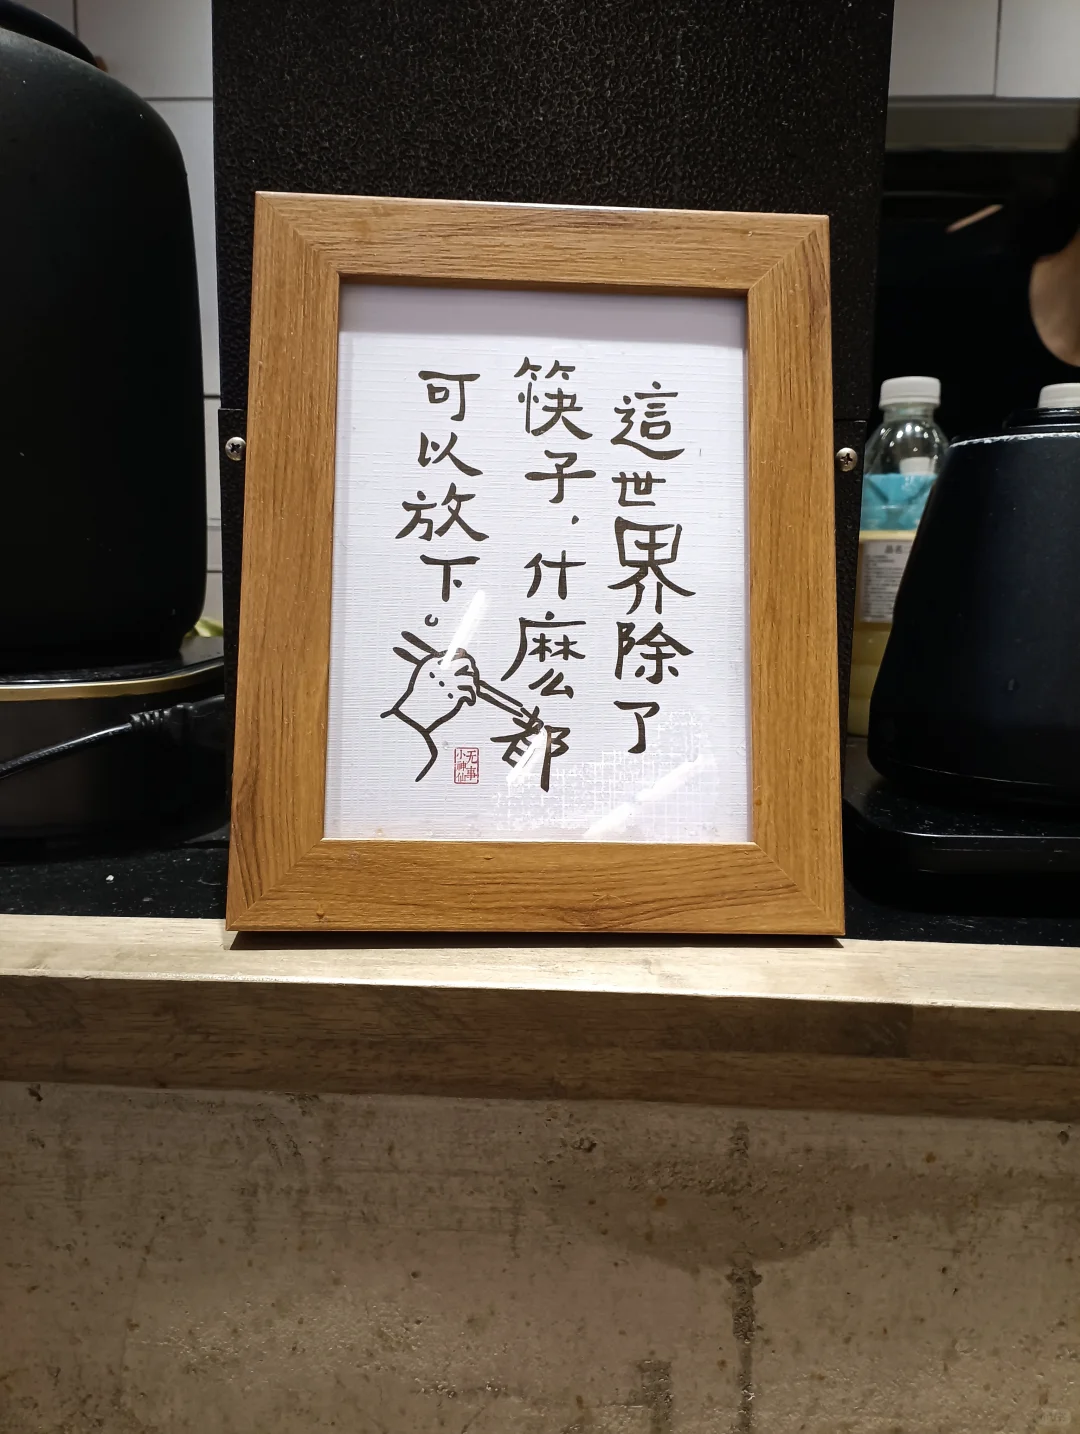 這世界除了
筷子，什麽都
可以放下。
无事
小神仙